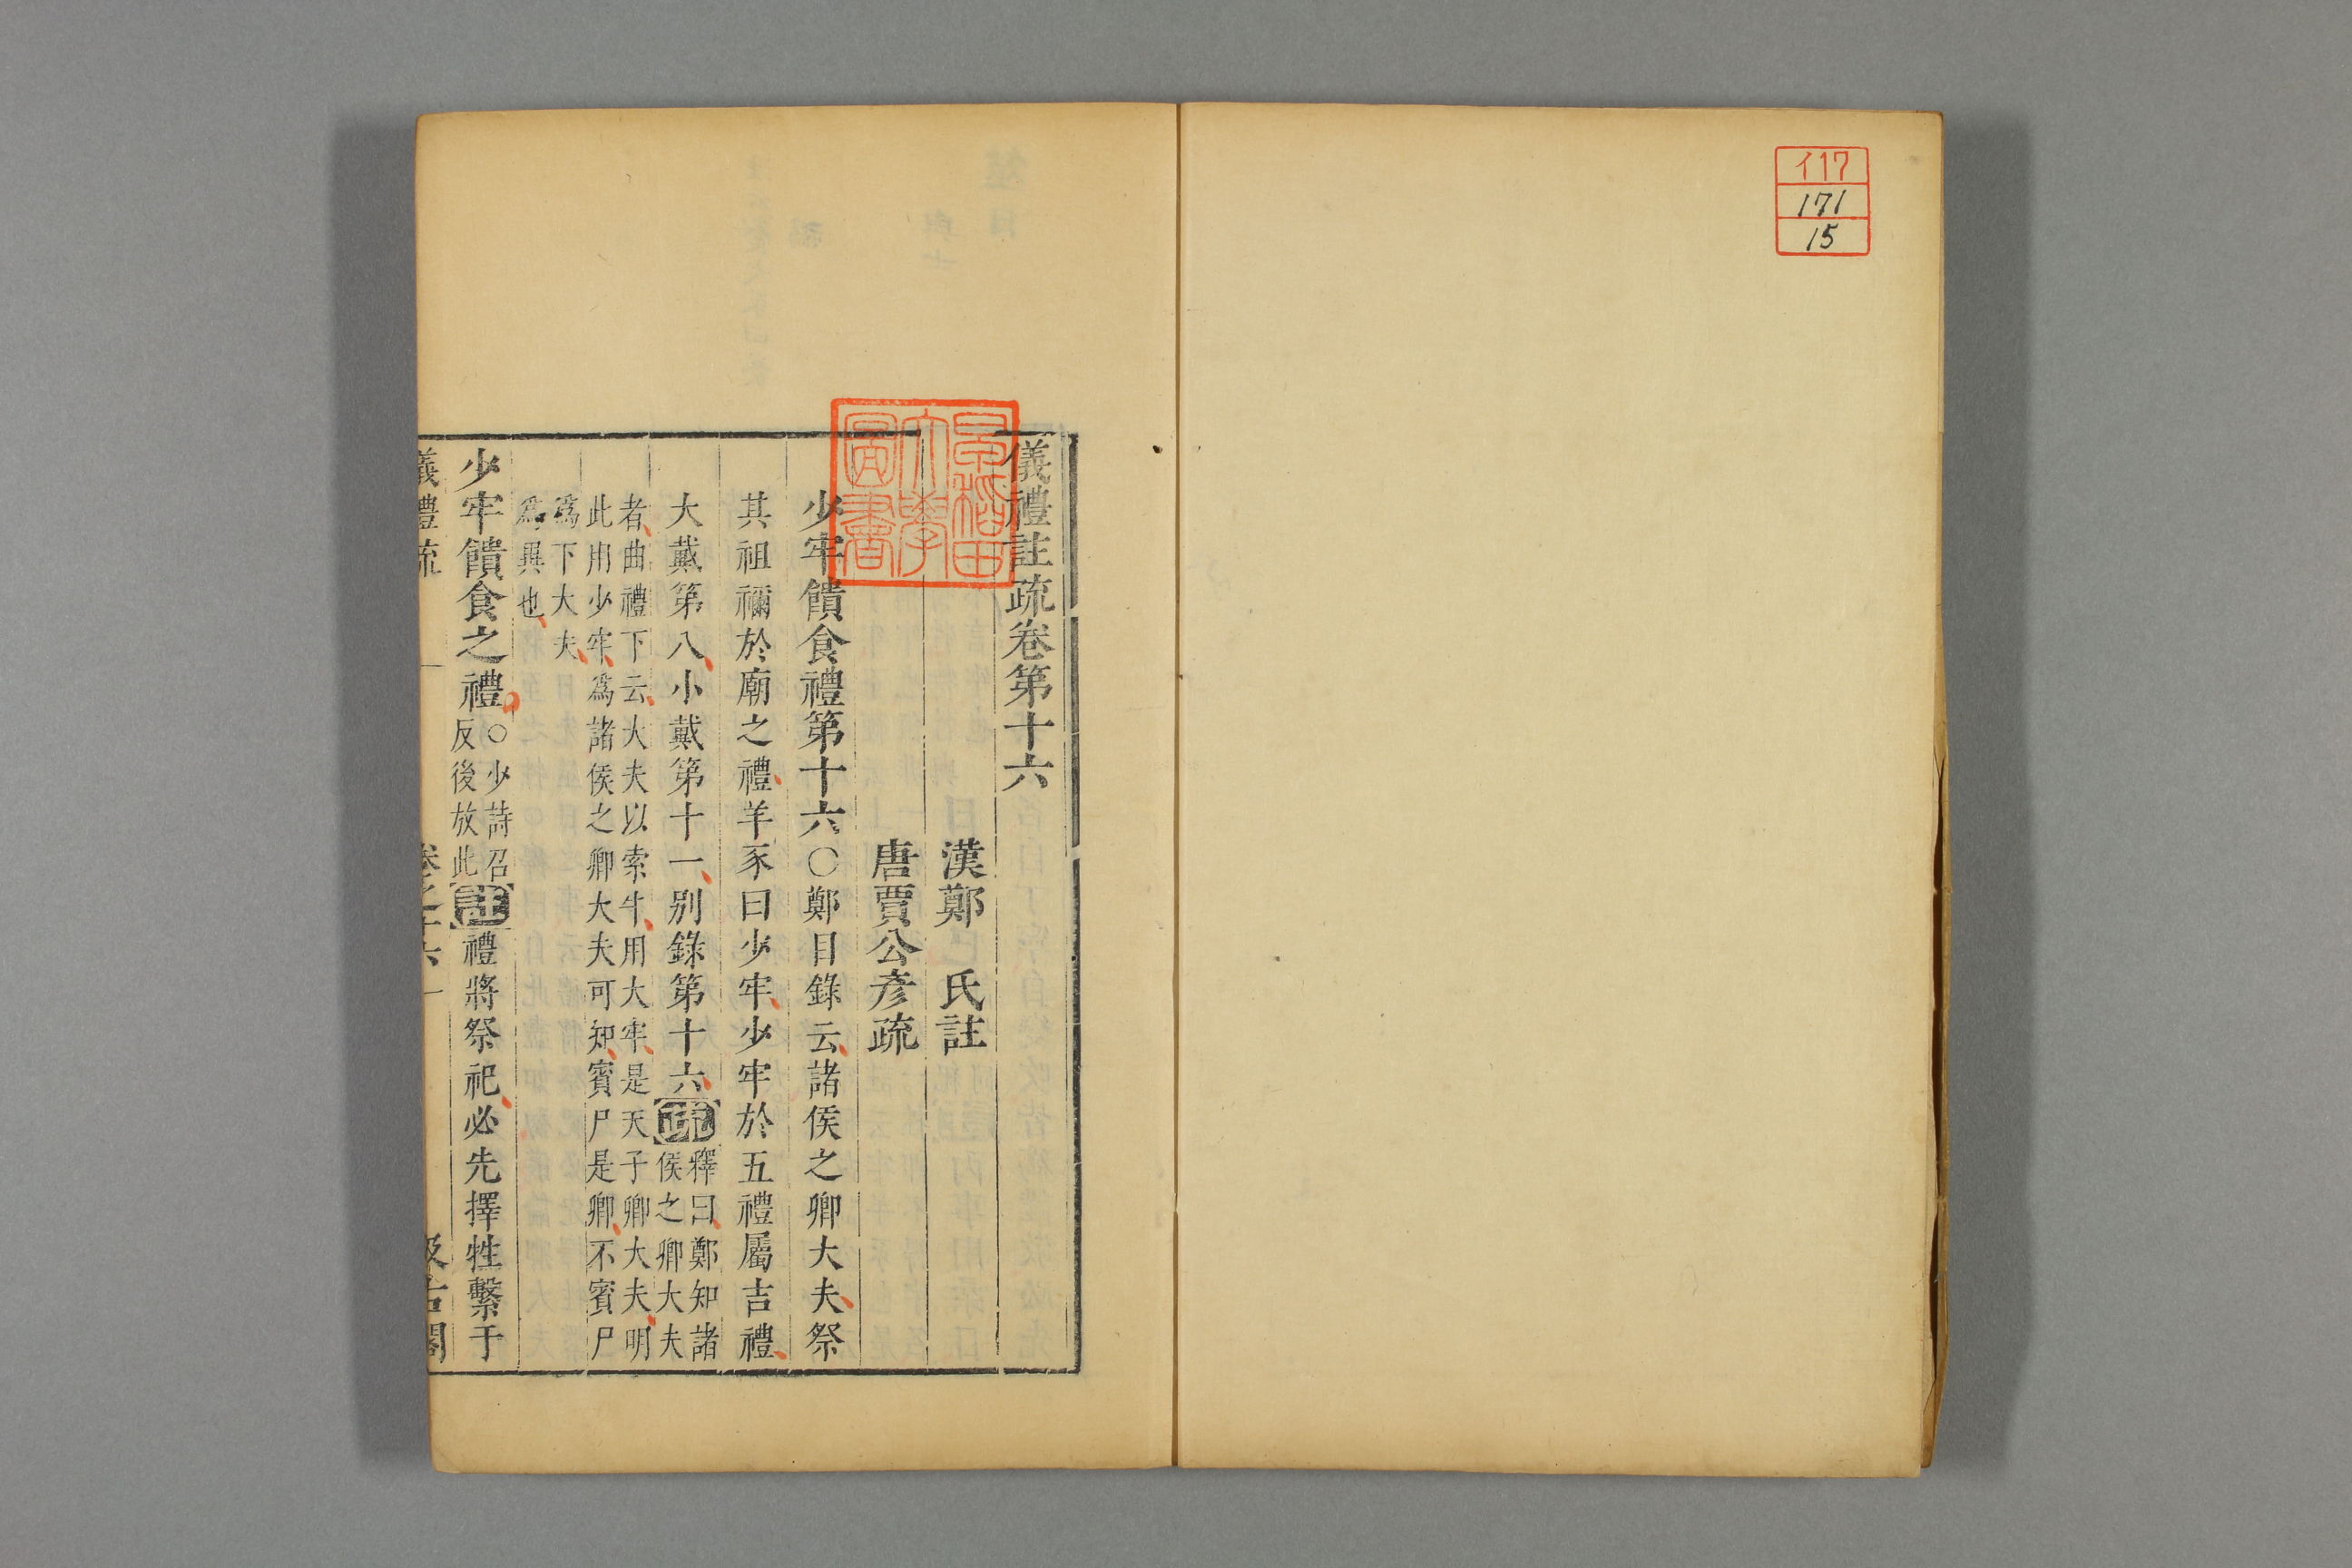 イ17
171
15
儀禮註疏卷第十六
早稻田大學圖書
漢鄭 氏註
唐賈公彦疏
少牢饋食禮第十六○鄭目錄云諸侯之卿大夫祭
其祖禰於廟之禮羊豕曰少牢少牢於五禮屬吉禮
大戴第八小戴第十一別錄第十六疏釋曰鄭知諸
侯之卿大夫
者曲禮下云大夫以索牛用大牢是天子卿大夫明
此用少牢爲諸侯之卿大夫可知賓尸是卿不賓尸
爲下大夫
爲異也
少牢饋食之禮○少詩召
反後放此註禮將祭祀必先擇牲繫于
儀禮疏 卷之十六 一 汲古閣